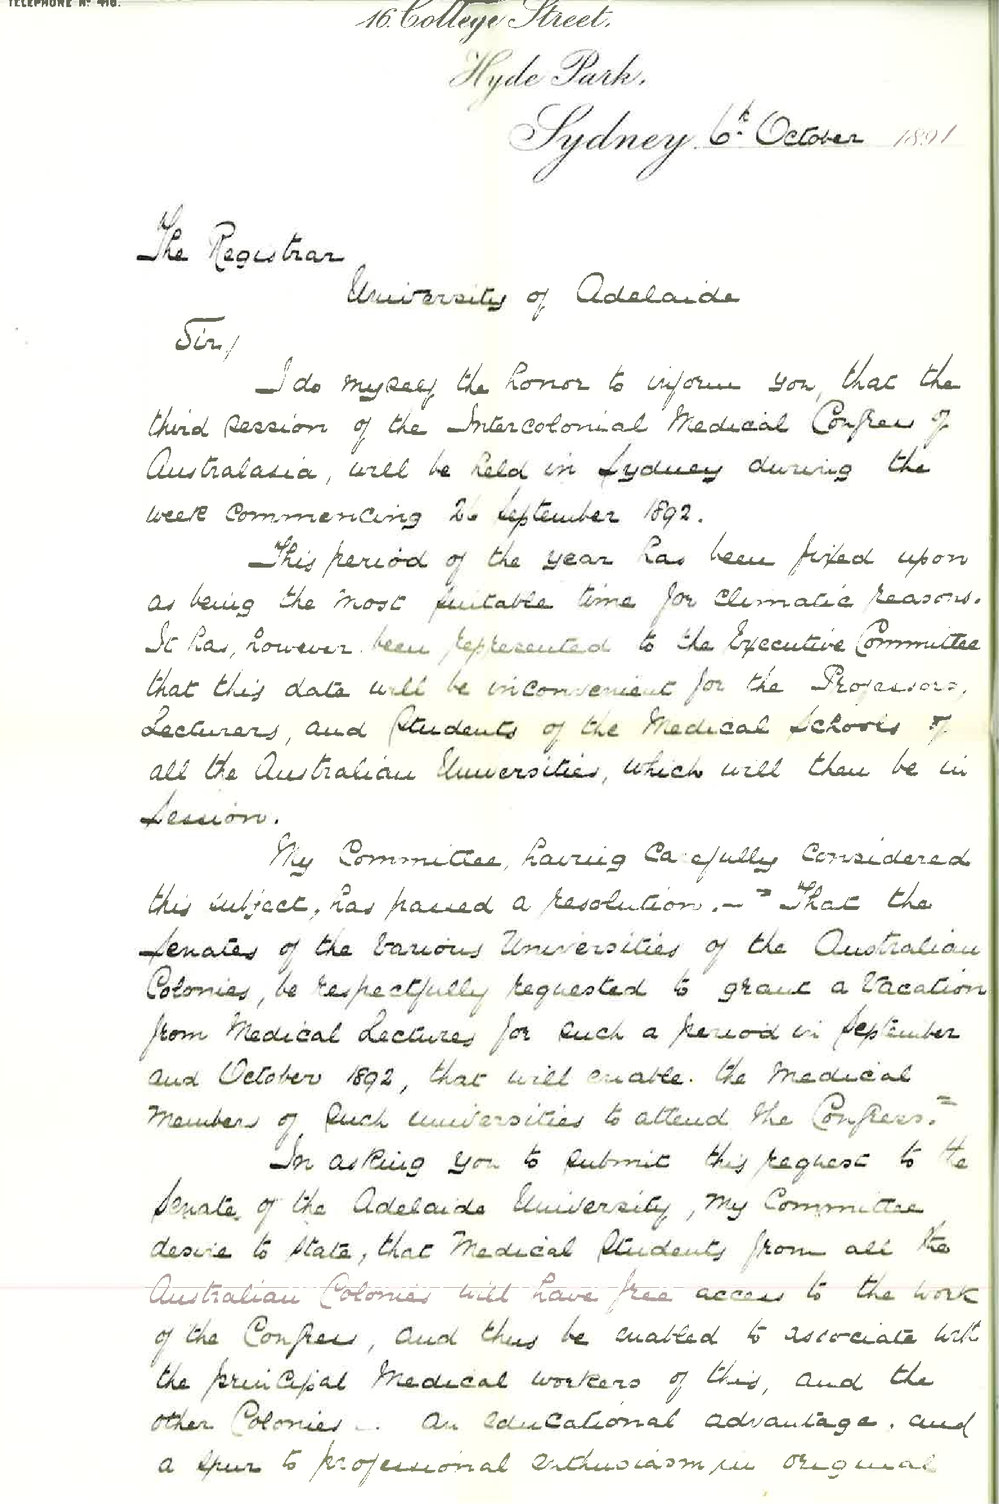 TELEPHONE No 416.
16. College Street,
Hyde Park,
Sydney. 6th October 1891
The Registrar
University of Adelaide
Sir/
I do myself the honor to inform you, that the
third session of the Intercolonial Medical Congress of
Australasia, will be held in Sydney during the
week commencing 26 September 1892.
This period of the year has been fixed upon
as being the most suitable time for climatic reasons.
It has, however been represented to the Executive Committee
that this date will be inconvenient for the Professors,
Lecturers, and Students of the Medical Schools of
all the Australian Universities, which will then be in
Session.
My Committee, having carefully considered
this subject, has passed a resolution. — "That the
Senates of the Various Universities of the Australian
Colonies, be respectfully requested to grant a Vacation
from Medical Lectures for such a period in September
and October 1892, that will enable the Medical
Members of such universities to attend the Congress."
In asking you to submit this request to the
Senate of the Adelaide University, My Committee
desire to state, that Medical Students from all the
Australian Colonies will have free access to the work
of the Congress, and thus be enabled to associate with
the principal Medical workers of this, and the
other Colonies — an educational advantage, and
a spur to professional enthusiasm in original